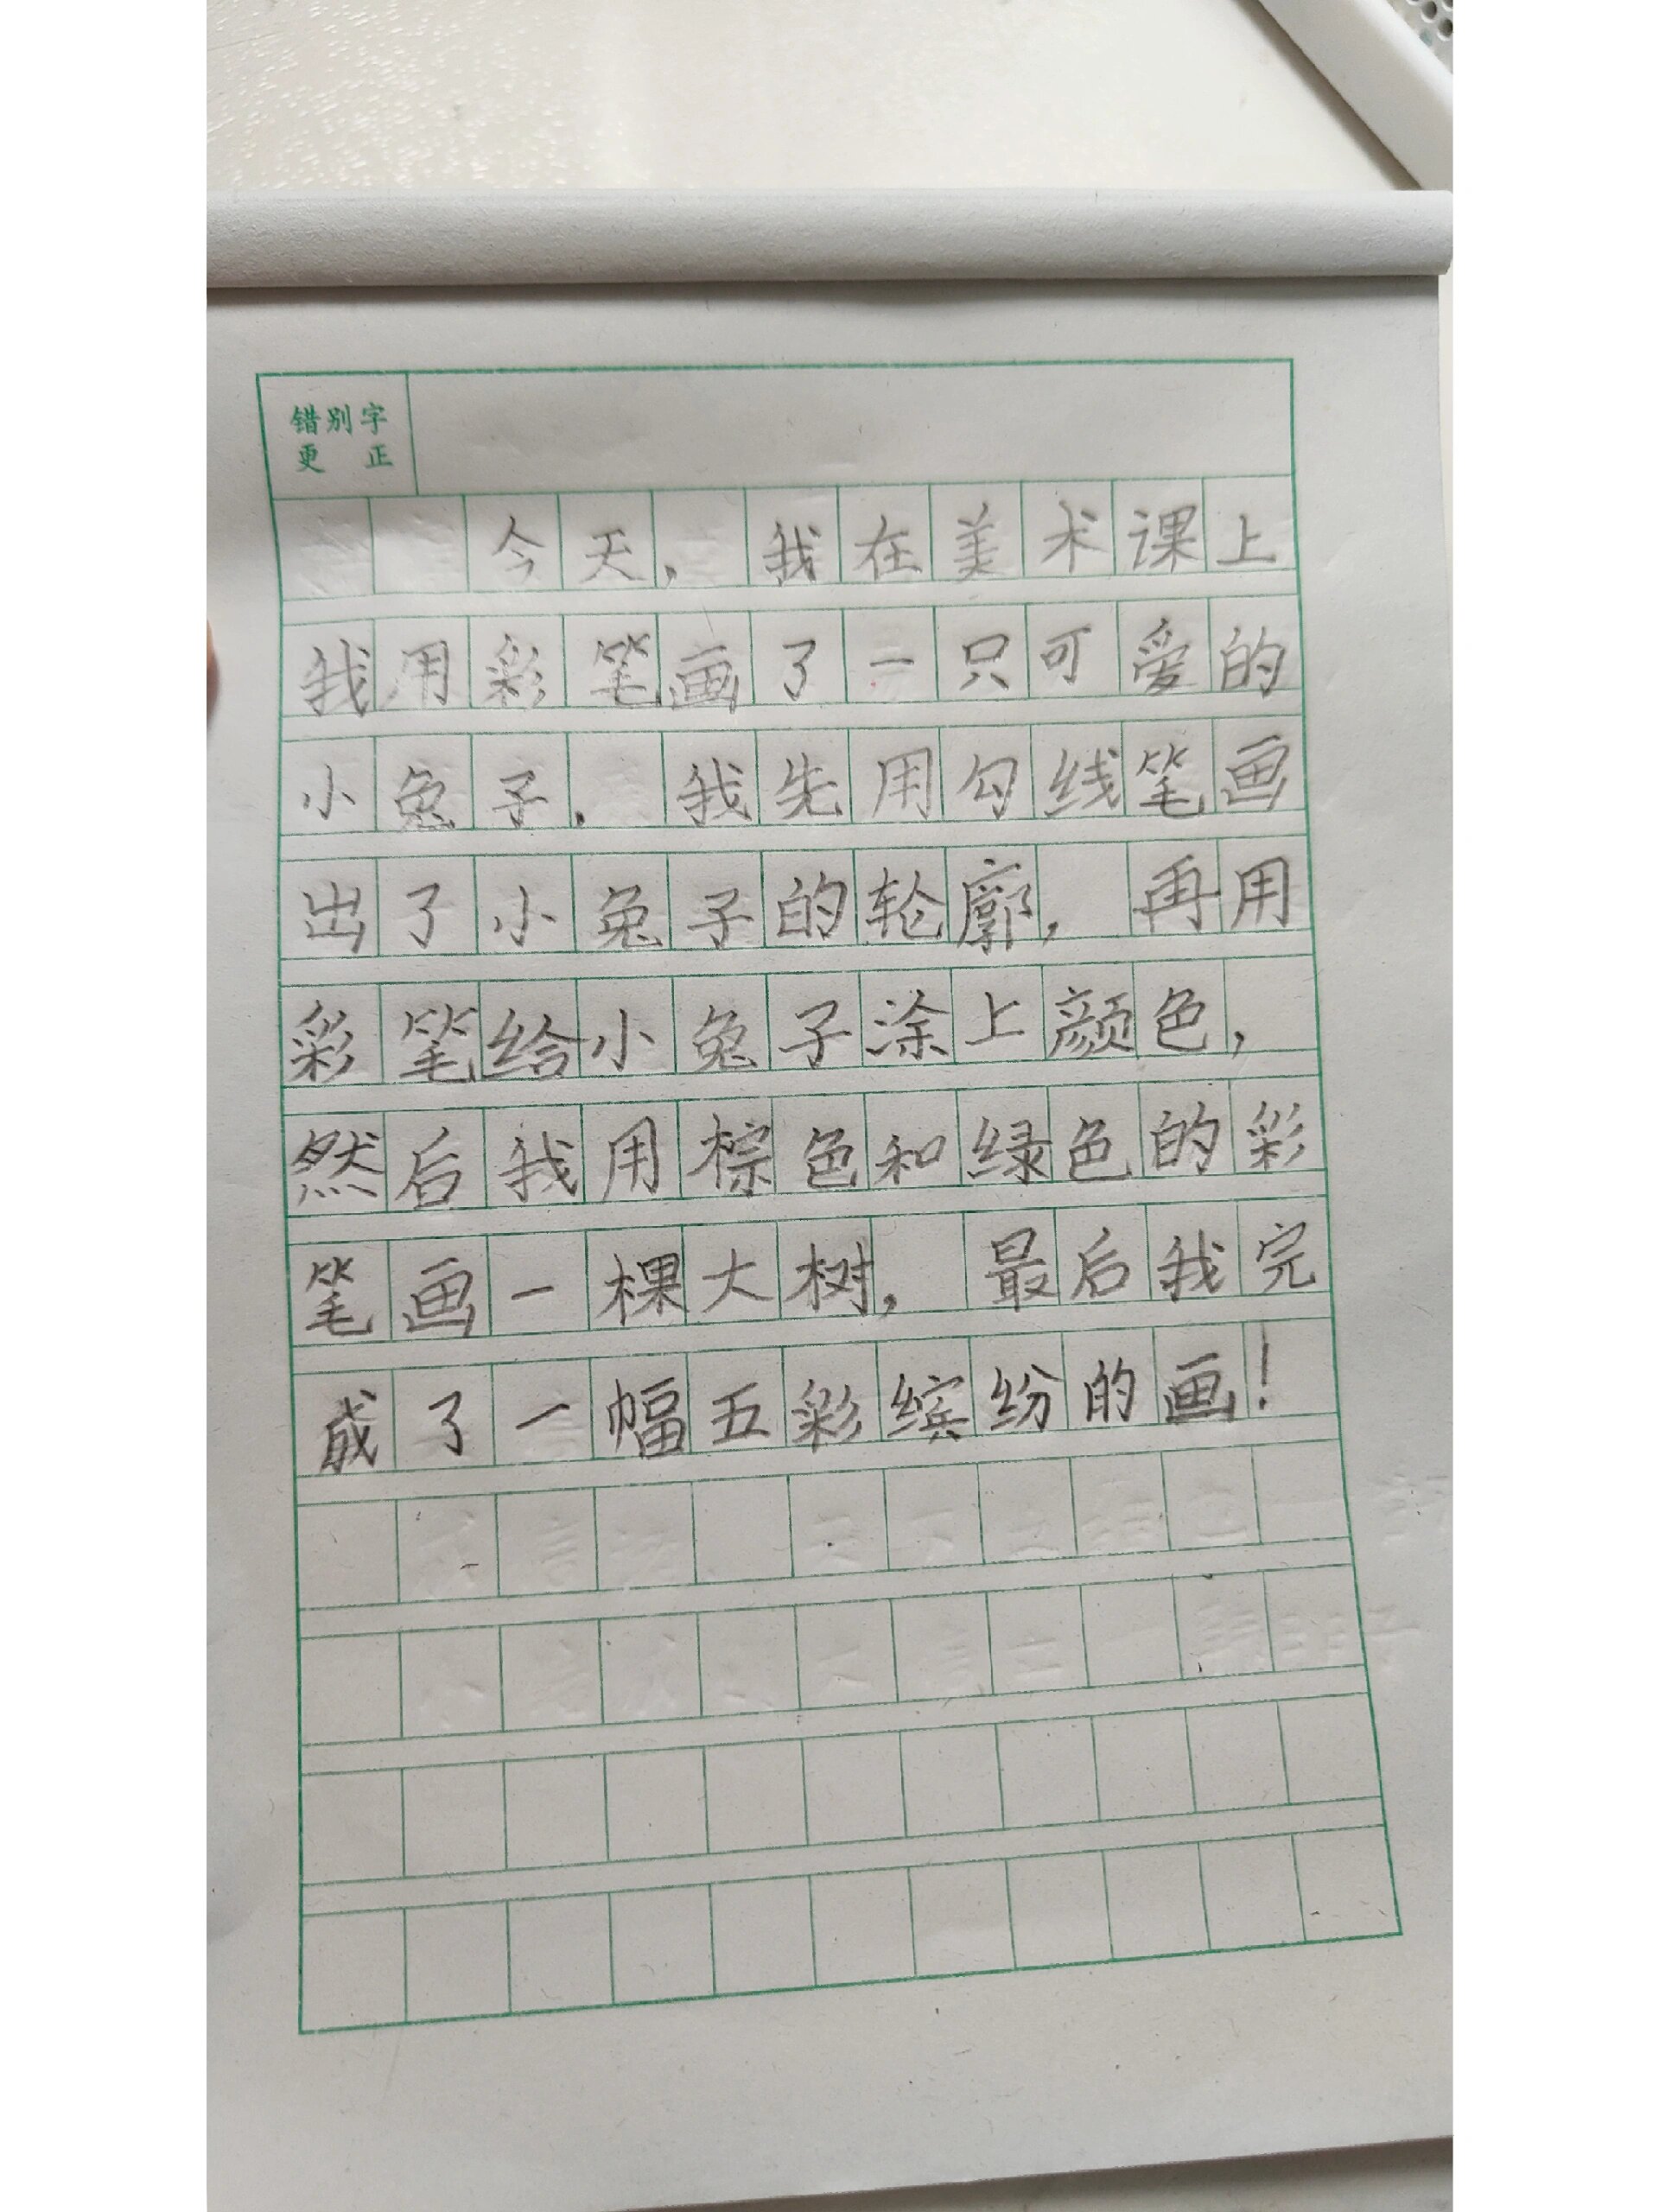 错别字
更正
今天，我在美术课上
我用彩笔画了一只可爱的
小兔子．我先用勾线笔画
出了小兔子的轮廓，再用
彩笔给小兔子涂上颜色，
然后我用棕色和绿色的彩
笔画一棵大树，最后我完
成了一幅五彩缤纷的画！